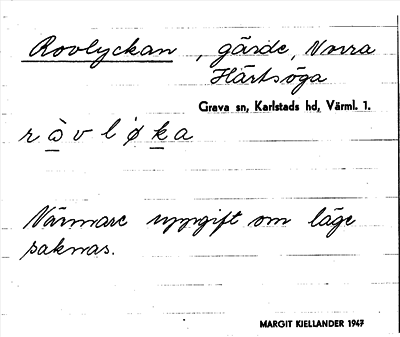 Rovlyckan, gärde, Norra
Härtsöga
Grava sn, Karlstads hd, Värml. 1.
r ò v l ø k a
Närmare uppgift om läge
saknas.
MARGIT KJELLANDER 1947